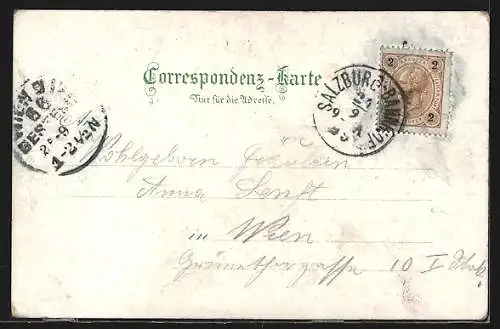 Correspondenz-Karte
Nur für die Adresse.
2 2
2 2
SALZBURG-BAHNHOF
WIEN
BESTELLT
1-2½N
Wohlgeborn Fräulein
Anna Senft
in Wien
Grünethorgasse 10 I Stock